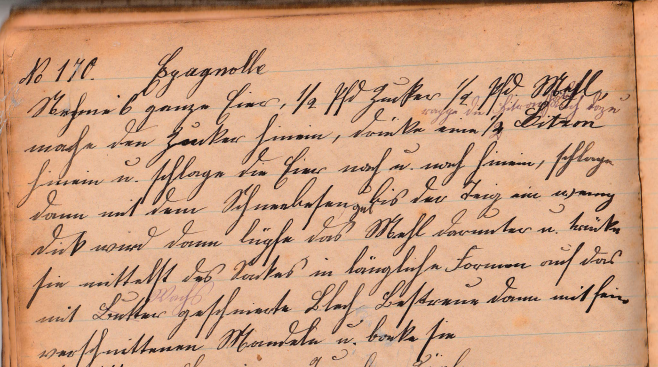 No 170. Espagnolle
Nehme 6 ganze Eier, 1/2 Pfd Zucker 1/2 Pfd Mehl,
mache den Zucker hinein, drücke eine 1/2 Citron
hinein u. schlage die Eier nach u. nach hinein, schlage
dann mit dem Schneebesen bis der Teig ein wenig
dick wird dann lüpfe das Mehl darunter u. drücke
sie mittelst des Sackes in längliche Formen auf das
mit Butter geschmierte Blech Bestreue dann mit fein
verschnittenen Mandeln u. backe sie